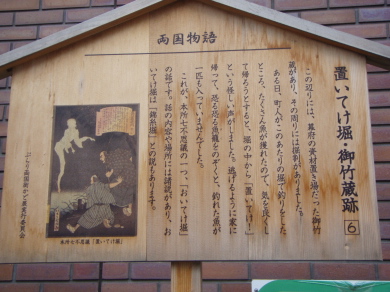 両国物語
置いてけ堀・御竹蔵跡 6
この辺りには、幕府の資材置き場だった御竹
蔵があり、その周りには掘割がありました。
ある日、町人がこのあたりの堀で釣りをした
ところ、たくさん魚が獲れたので、気を良くし
て帰ろうとすると、堀の中から「置いてけ！」
という怪しい声がしました。逃げるように家に
帰って、恐る恐る魚籠をのぞくと、釣れた魚が
一匹も入っていませんでした。
これが、本所七不思議の一つ、「おいてけ堀」
の話です。話の内容や場所には諸説があり、お
いてけ堀は「錦糸堀」との説もあります。
本所七不思議「置いてけ堀」
ぶらり両国街かど展実行委員会